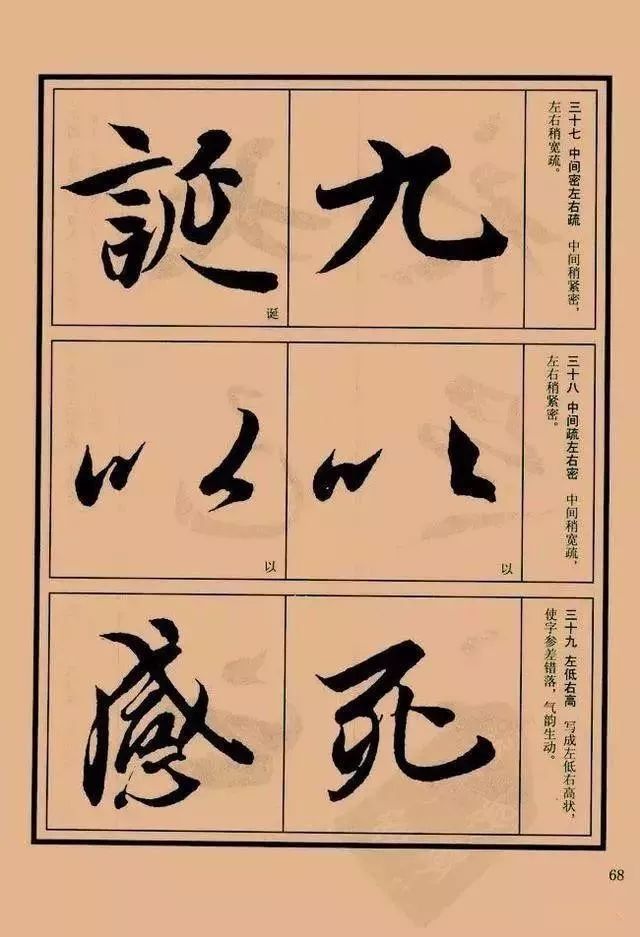 三十七 中间密左右疏 中间稍紧密，
左右稍宽疏。
九
誕
诞
三十八 中间疏左右密 中间稍宽疏，
左右稍紧密。
以
以
以
以
三十九 左低右高 写成左低右高状，
使字参差错落，气韵生动。
死
感
68